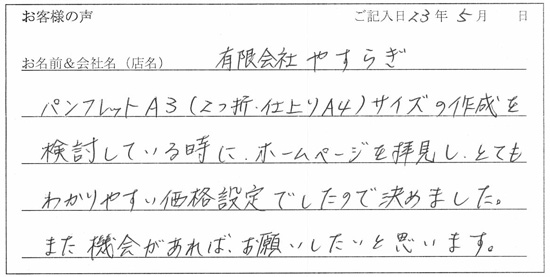 お客様の声 ご記入日23年5月 日
お名前&会社名（店名） 有限会社やすらぎ
パンフレットA3（2つ折・仕上りA4）サイズの作成を
検討している時に、ホームページを拝見し、とても
わかりやすい価格設定でしたので決めました。
また機会があれば、お願いしたいと思います。